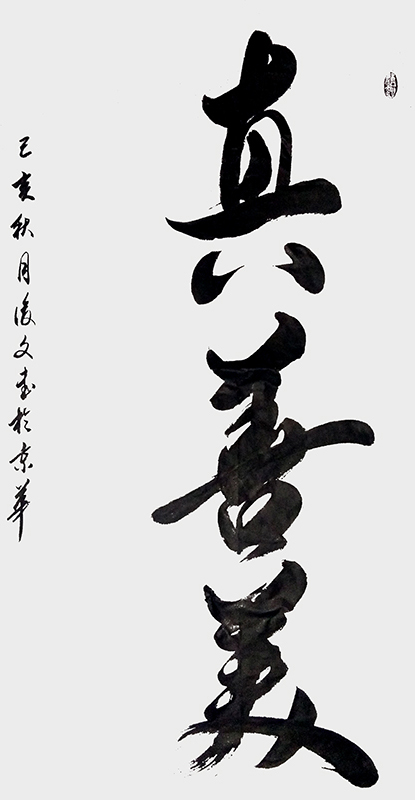 真善美
己亥秋月浚文书於京华